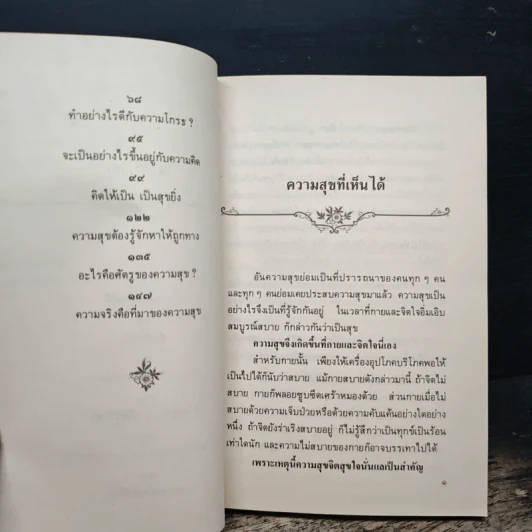 ๖๘
ทำอย่างไรดีกับความโกรธ ?
๙๕
จะเป็นอย่างไรขึ้นอยู่กับความคิด
๙๙
คิดให้เป็น เป็นสุขยิ่ง
๑๒๒
ความสุขต้องรู้จักหาให้ถูกทาง
๑๓๕
อะไรคือศัตรูของความสุข ?
๑๔๗
ความจริงคือที่มาของความสุข
ความสุขที่เห็นได้
อันความสุขย่อมเป็นที่ปรารถนาของคนทุก ๆ คน
และทุก ๆ คนย่อมเคยประสบความสุขมาแล้ว ความสุขเป็น
อย่างไรจึงเป็นที่รู้จักกันอยู่ ในเวลาที่กายและจิตใจอิ่มเอิบ
สมบูรณ์สบาย ก็กล่าวกันว่าเป็นสุข
ความสุขจึงเกิดขึ้นที่กายและจิตใจนี่เอง
สำหรับกายนั้น เพียงให้เครื่องอุปโภคบริโภคพอให้
เป็นไปได้ก็นับว่าสบาย แม้กายสบายดังกล่าวมานี้ ถ้าจิตไม่
สบาย กายก็พลอยซูบซีดเศร้าหมองด้วย ส่วนกายเมื่อไม่
สบายด้วยความเจ็บป่วยหรือด้วยความคับแค้นอย่างใดอย่าง
หนึ่ง ถ้าจิตยังร่าเริงสบายอยู่ ก็ไม่รู้สึกว่าเป็นทุกข์เป็นร้อน
เท่าใดนัก และความไม่สบายของกายก็อาจบรรเทาไปได้
เพราะเหตุนี้ความสุขจิตสุขใจนั่นแลเป็นสำคัญ
๑